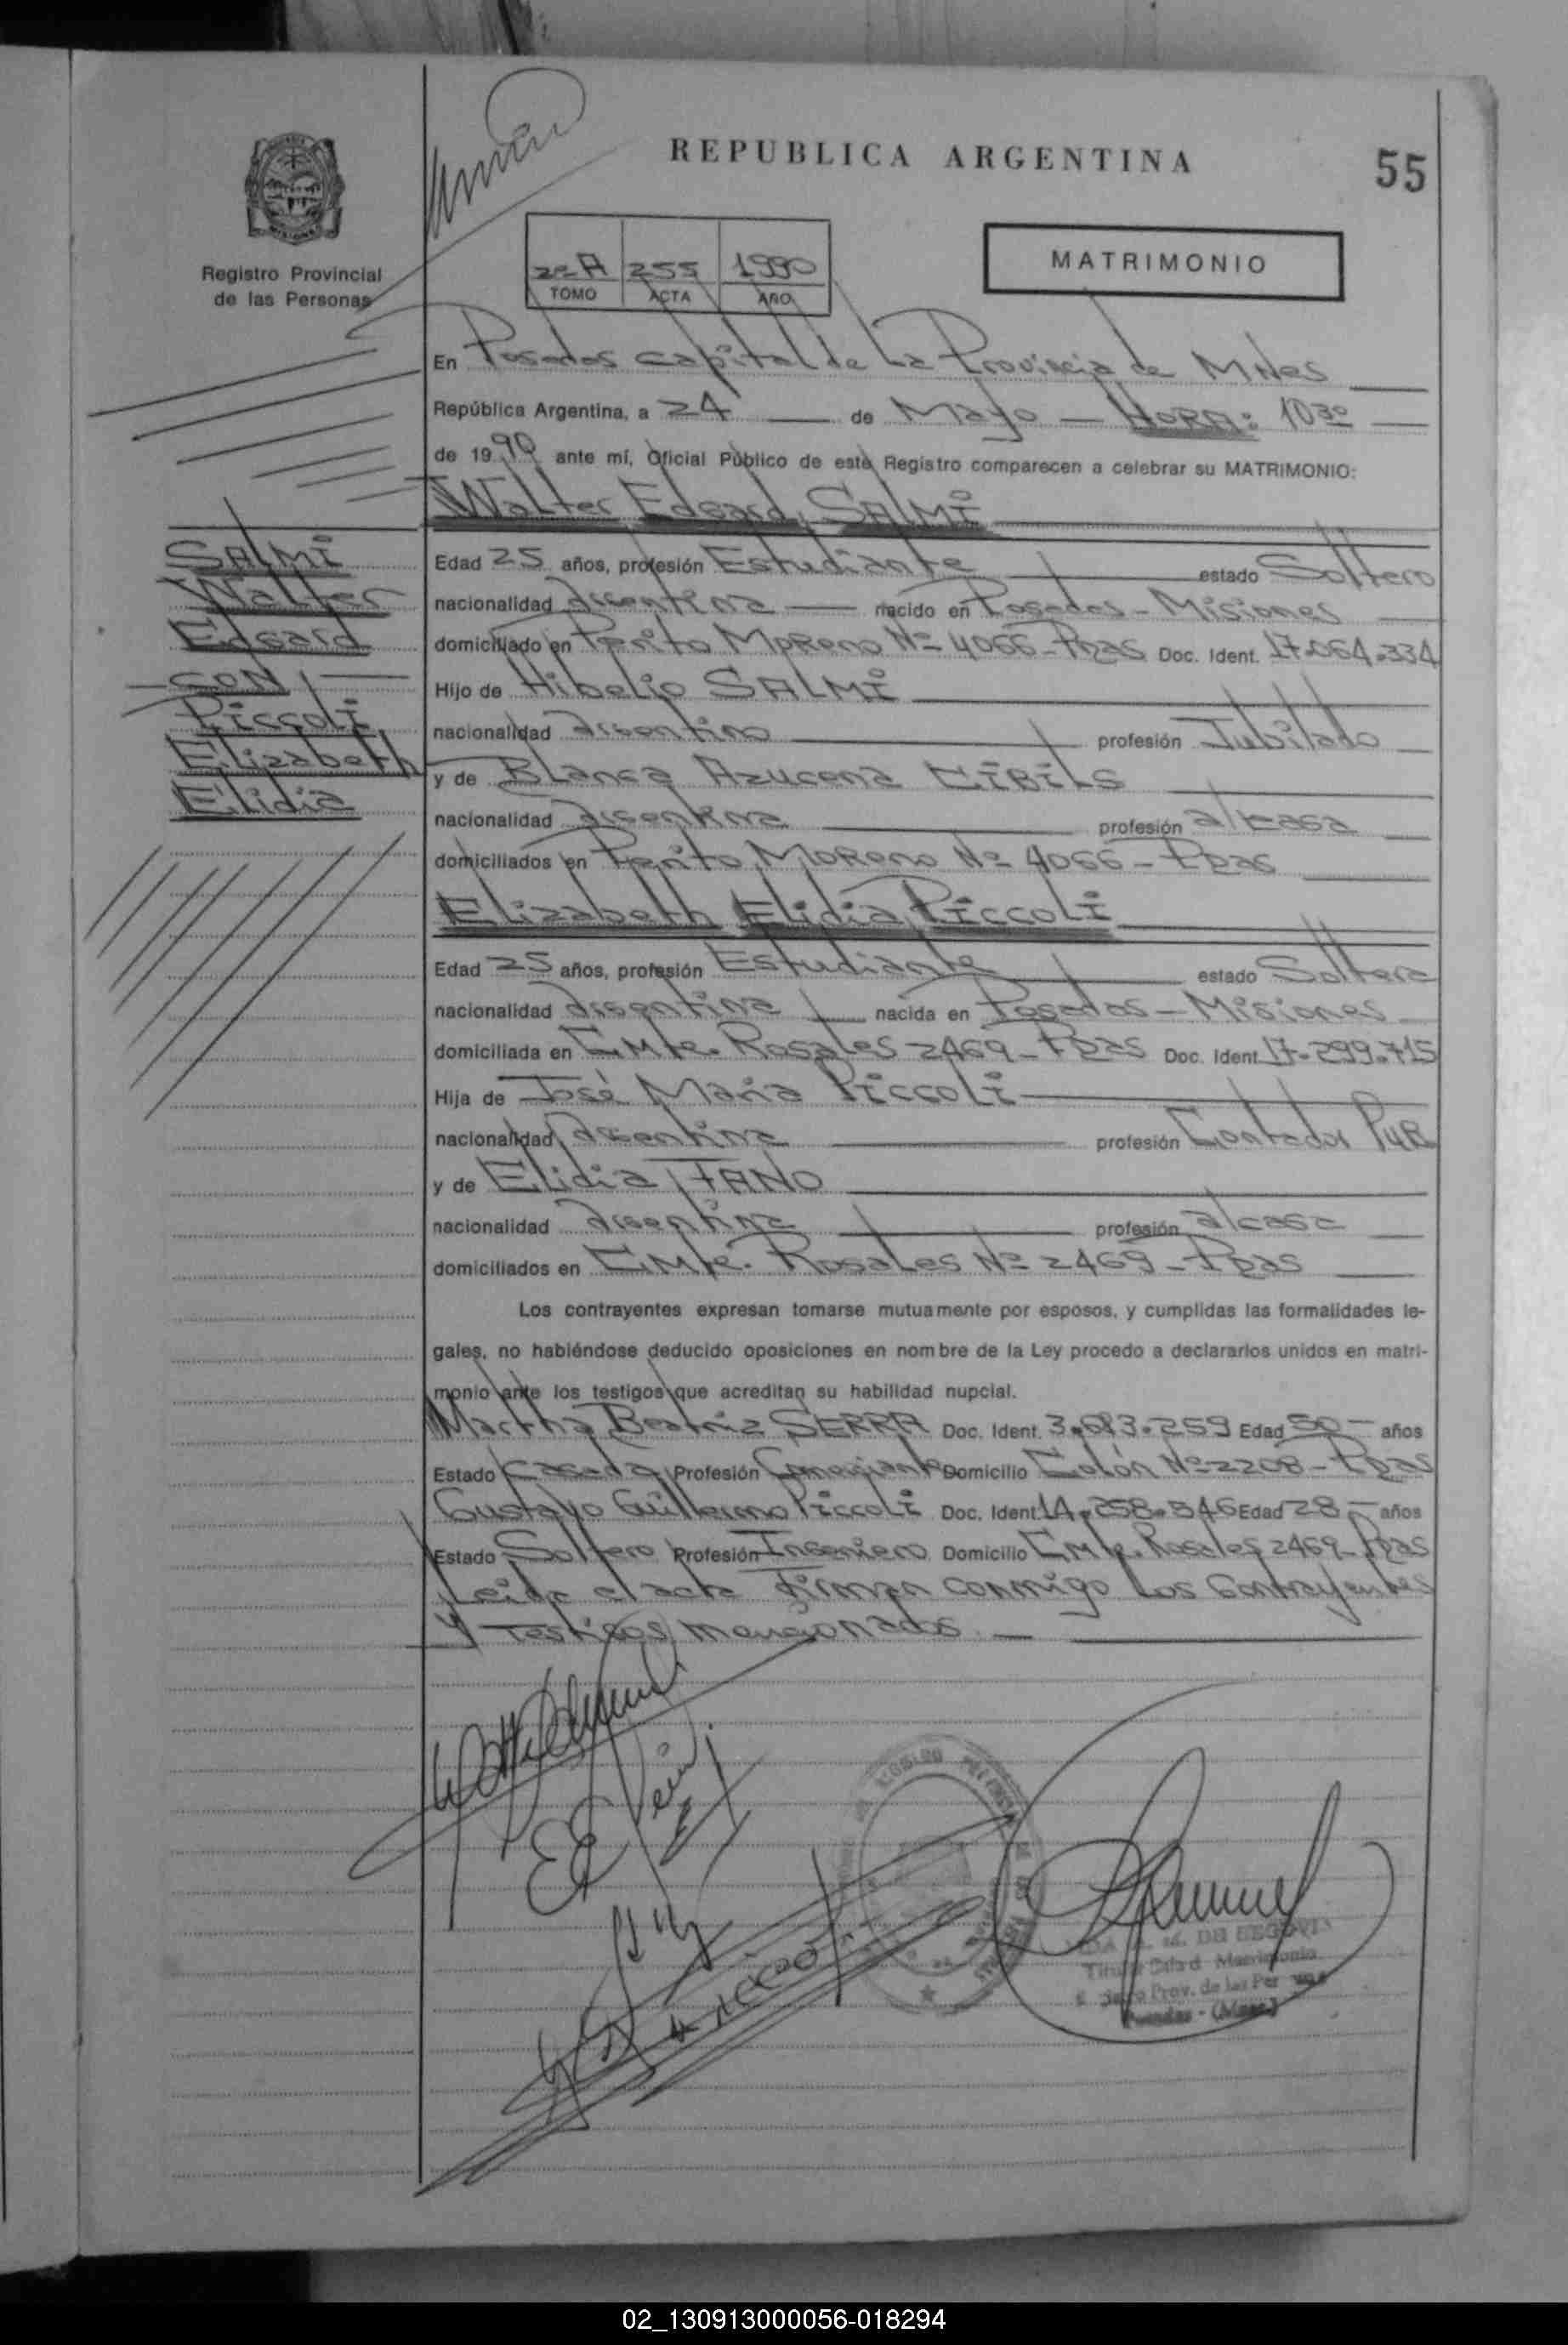 REPUBLICA ARGENTINA
55
Registro Provincial
de las Personas
2º A 255 1990
TOMO ACTA AÑO
MATRIMONIO
En Posadas Capital de La Provincia de MNes
República Argentina, a 24 de Mayo — HORA: 1030
de 1990 ante mí, Oficial Público de este Registro comparecen a celebrar su MATRIMONIO:
Walter Edgard SALMI
SALMI
Walter
Edgard
CON
Piccoli
Elizabeth
Elidia
Edad 25 años, profesión Estudiante estado Soltero
nacionalidad argentina nacido en Posadas - Misiones
domiciliado en Perito MoReno Nº 4066 - Pdas Doc. Ident. 17.064.334
Hijo de Hibelio SALMI
nacionalidad argentino profesión Jubilado
y de Blanca Azucena CIBILS
nacionalidad argentina profesión a/casa
domiciliados en Perito MoReno Nº 4066 - Pdas
Elizabeth Elidia Piccoli
Edad 25 años, profesión Estudiante estado Soltera
nacionalidad argentina nacida en Posadas - Misiones
domiciliada en Cmte. Rosales 2469 - Pdas Doc. Ident 17.299.715
Hija de José Maria Piccoli
nacionalidad argentina profesión Contador PuB
y de Elidia FANO
nacionalidad argentina profesión a/casa
domiciliados en Cmte. Rosales Nº 2469 - Pdas
Los contrayentes expresan tomarse mutuamente por esposos, y cumplidas las formalidades le-
gales, no habiéndose deducido oposiciones en nombre de la Ley procedo a declararlos unidos en matri-
monio ante los testigos que acreditan su habilidad nupcial.
Martha Beatriz SERRA Doc. Ident. Edad 50 años
Estado Casada Profesión Comerciante Domicilio Colón Nº 2208 - Pdas
Gustavo Guillermo Piccoli Doc. Ident 14.258.546 Edad 28 años
Estado Soltero Profesión Ingeniero Domicilio Cmte. Rosales 2469 - Pdas
Leida el acta firman conmigo Los Contrayentes
y Testigos mencionados.
DE SEGOVIA
Prov. de las Per
Posadas - (Mnes.)
02_130913000056-018294